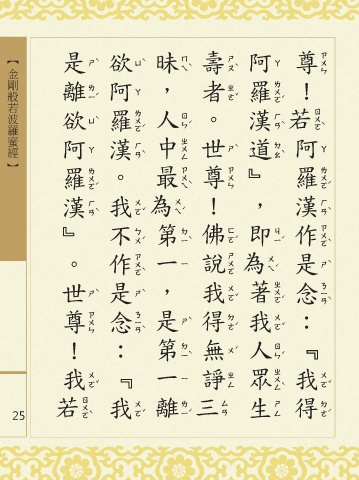 尊！若阿羅漢作是念：『我得
阿羅漢道』，即為著我人眾生
壽者。世尊！佛說我得無諍三
昧，人中最為第一，是第一離
欲阿羅漢。我不作是念：『我
是離欲阿羅漢』。世尊！我若
【金剛般若波羅蜜經】
25